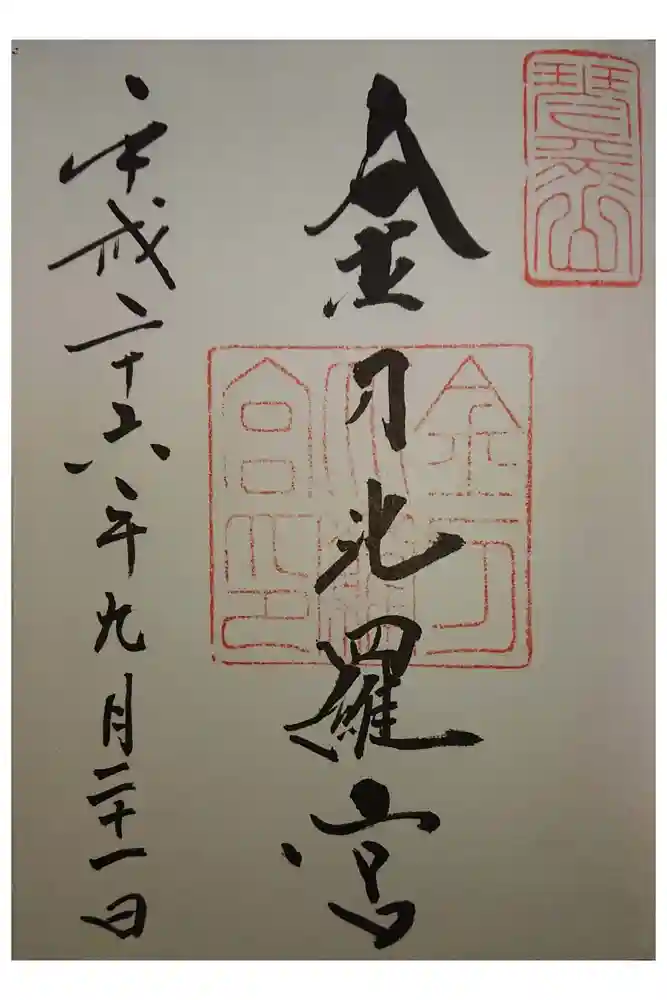 琴平山
金刀比羅宮
金刀比羅宮之印
平成二十六年九月二十一日